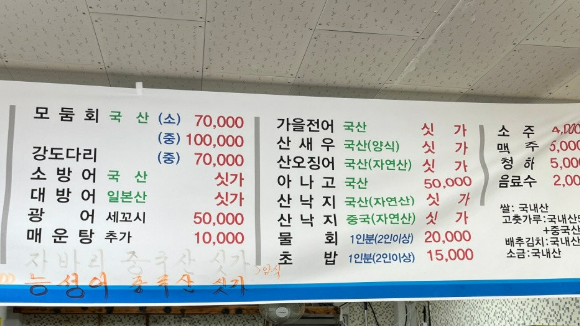 모둠회 국산 (소) 70,000
(중) 100,000
강도다리 (중) 70,000
소방어 국산 싯가
대방어 일본산 싯가
광어 세꼬시 50,000
매운탕 추가 10,000
자바리 중국산 싯가
능성어 중국산 싯가
가을전어 국산 싯가
산새우 국산(양식) 싯가
산오징어 국산(자연산) 싯가
아나고 국산 50,000
산낙지 국산(자연산) 싯가
산낙지 중국(자연산) 싯가
물회 1인분(2인이상) 20,000
초밥 1인분(2인이상) 15,000
소주 4,000
맥주 5,000
청하 5,000
음료수 2,00
쌀: 국내산
고춧가루:국내산
+중국산
배추김치:국내산
소금:국내산